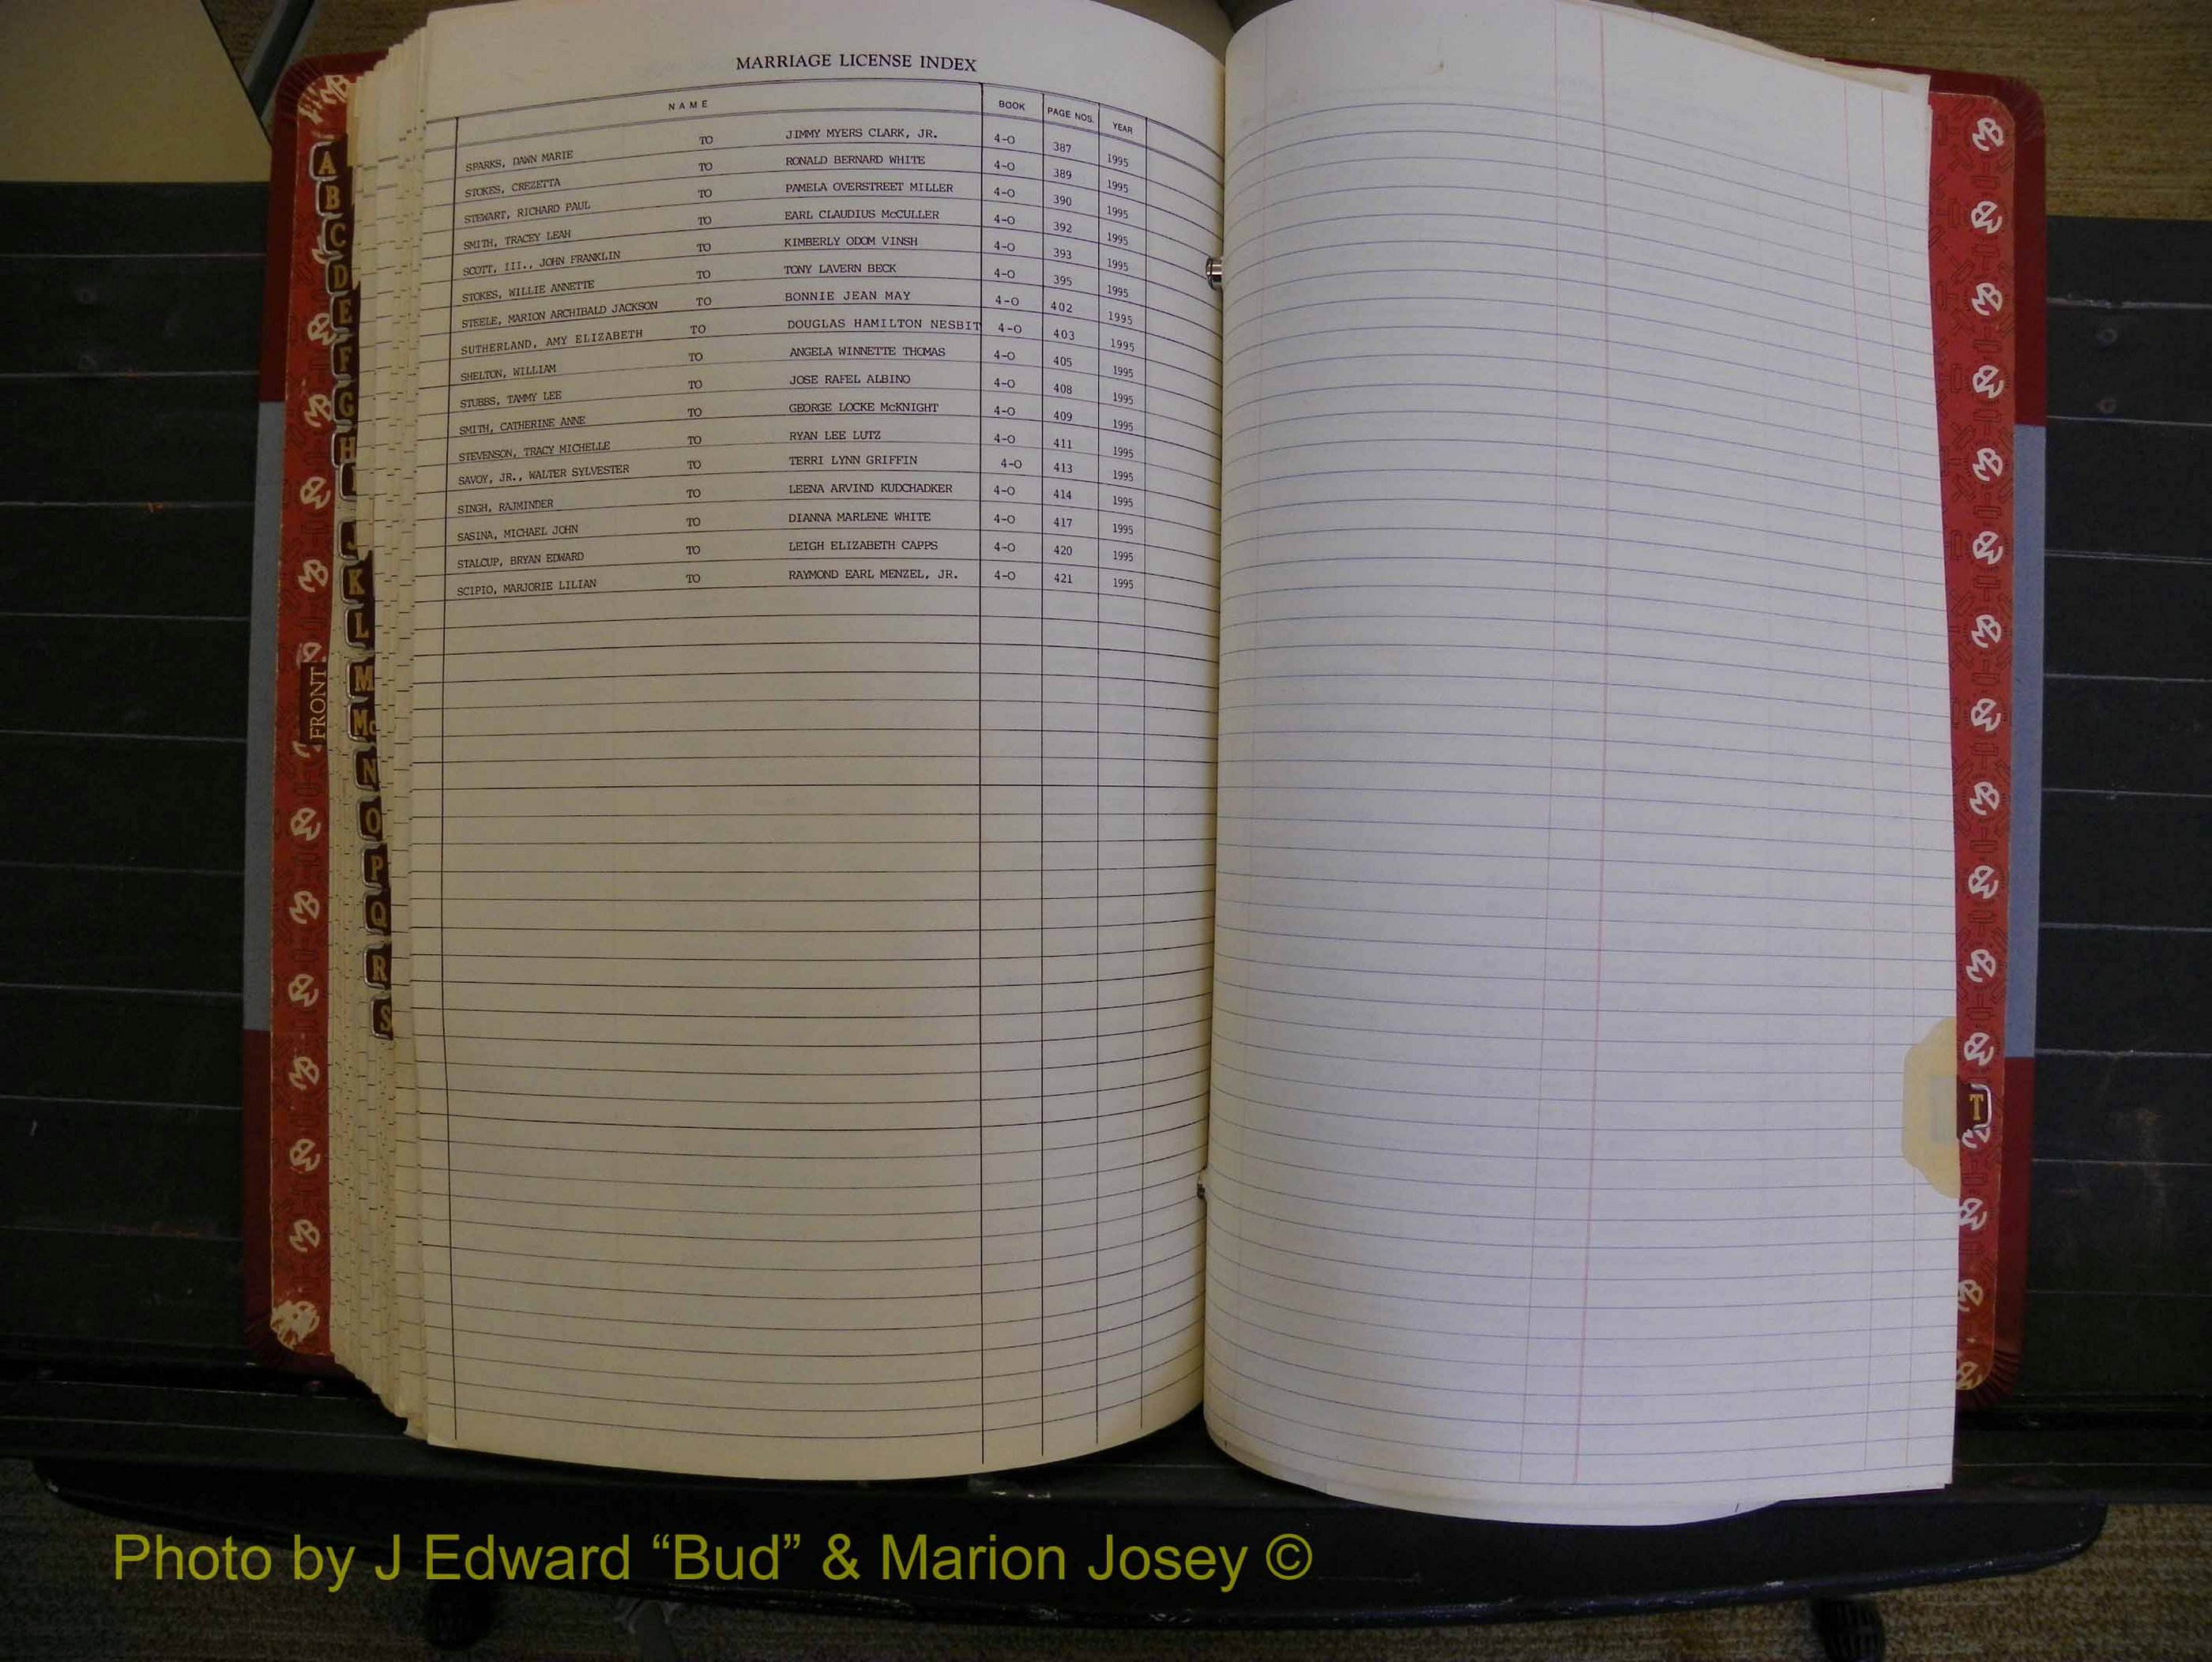 MARRIAGE LICENSE INDEX
NAME BOOK PAGE NOS. YEAR
SPARKS, DAWN MARIE TO JIMMY MYERS CLARK, JR. 4-O 387 1995
STOKES, CREZETTA TO RONALD BERNARD WHITE 4-O 389 1995
STEWART, RICHARD PAUL TO PAMELA OVERSTREET MILLER 4-O 390 1995
SMITH, TRACEY LEAH TO EARL CLAUDIUS McCULLER 4-O 392 1995
SCOTT, III., JOHN FRANKLIN TO KIMBERLY ODOM VINSH 4-O 393 1995
STOKES, WILLIE ANNETTE TO TONY LAVERN BECK 4-O 395 1995
STEELE, MARION ARCHIBALD JACKSON TO BONNIE JEAN MAY 4-O 402 1995
SUTHERLAND, AMY ELIZABETH TO DOUGLAS HAMILTON NESBIT 4-O 403 1995
SHELTON, WILLIAM TO ANGELA WINNETTE THOMAS 4-O 405 1995
STUBBS, TAMMY LEE TO JOSE RAFEL ALBINO 4-O 408 1995
SMITH, CATHERINE ANNE TO GEORGE LOCKE McKNIGHT 4-O 409 1995
STEVENSON, TRACY MICHELLE TO RYAN LEE LUTZ 4-O 411 1995
SAVOY, JR., WALTER SYLVESTER TO TERRI LYNN GRIFFIN 4-O 413 1995
SINGH, RAJMINDER TO LEENA ARVIND KUDCHADKER 4-O 414 1995
SASINA, MICHAEL JOHN TO DIANNA MARLENE WHITE 4-O 417 1995
STALCUP, BRYAN EDWARD TO LEIGH ELIZABETH CAPPS 4-O 420 1995
SCIPIO, MARJORIE LILIAN TO RAYMOND EARL MENZEL, JR. 4-O 421 1995
A
B
C
D
E
F
G
H
J
K
L
M
Mc
N
O
P
Q
R
S
FRONT
T
Photo by J Edward “Bud” & Marion Josey ©